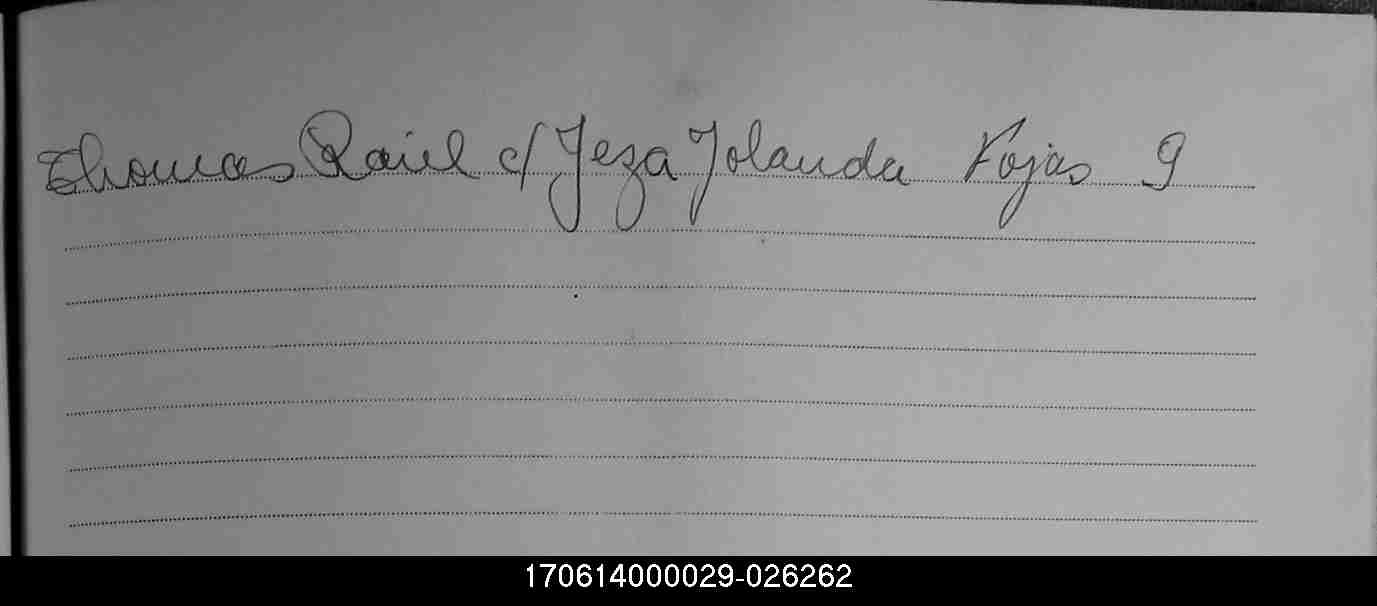 Thomas Raúl c/ Jeza Jolanda Fojas 9
170614000029-026262